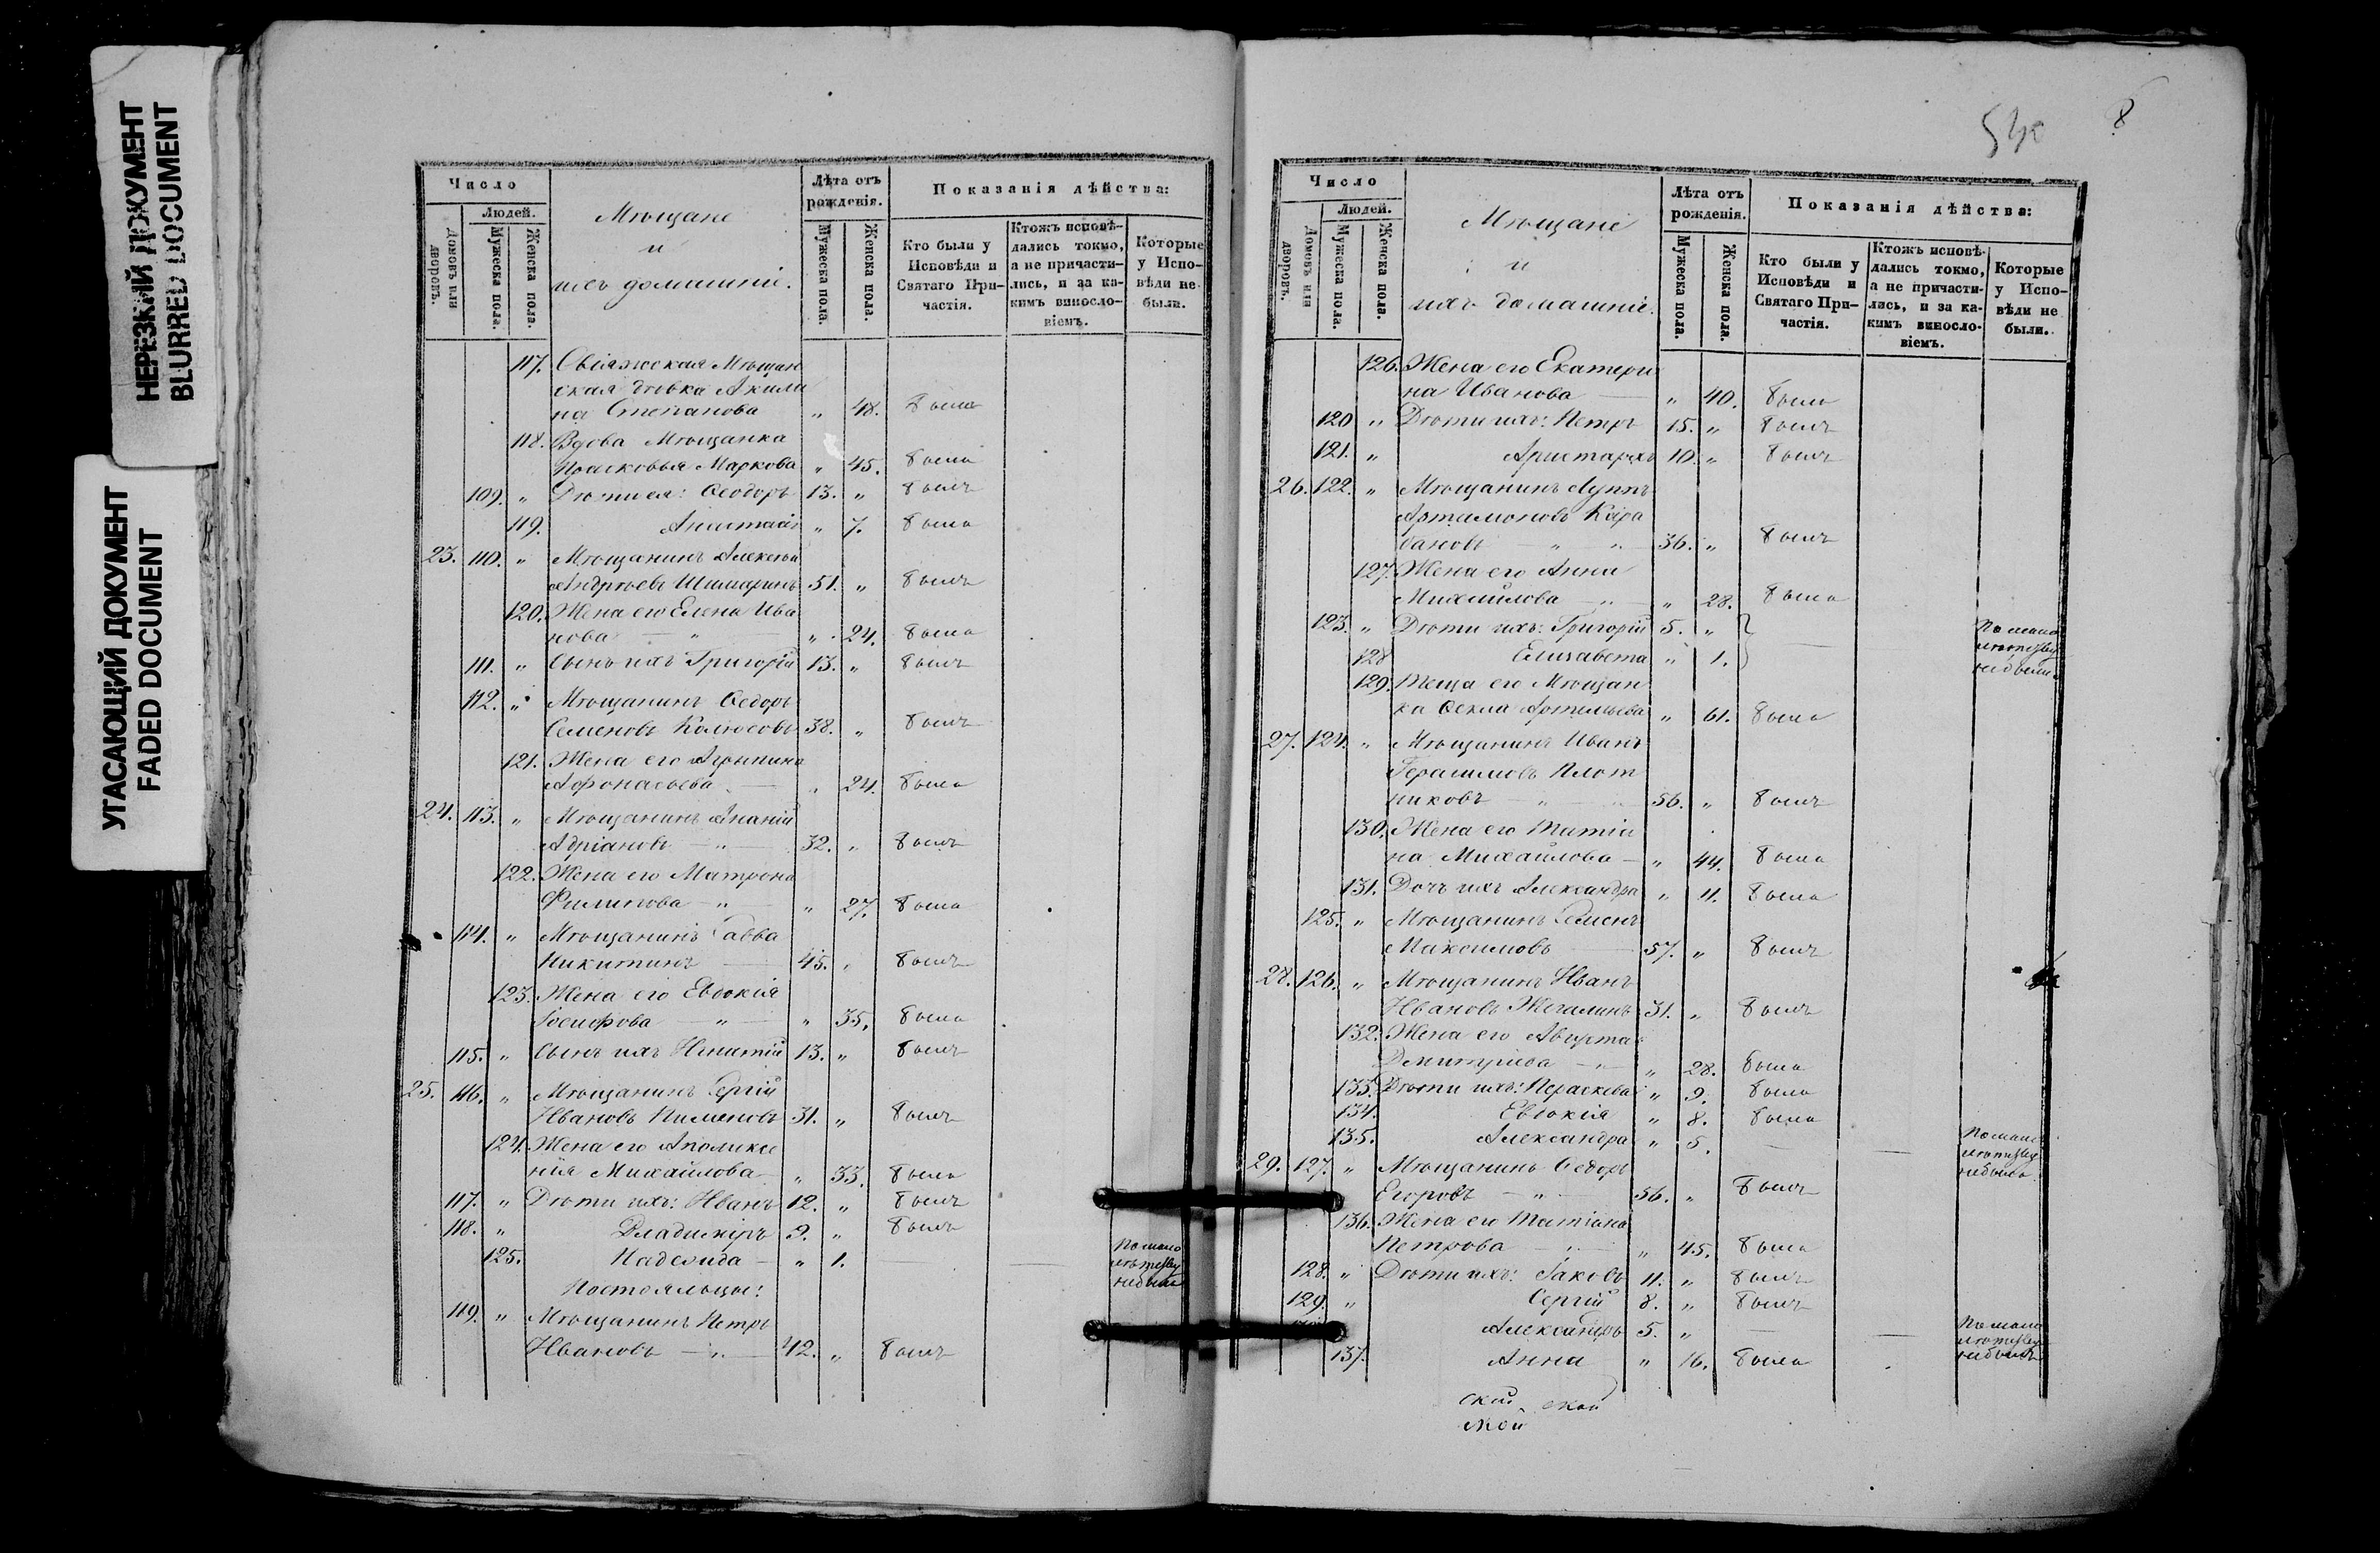 НЕРЕЗКИЙ ДОКУМЕНТ
BLURRED DOCUMENT
УГАСАЮЩИЙ ДОКУМЕНТ
FADED DOCUMENT
Число
Людей.
Домовъ или дворовъ.
Мужеска пола.
Женска пола.
Мѣщане
и
ихъ домашніе.
Лѣта отъ рожденія.
Мужеска пола.
Женска пола.
Показанія дѣйства:
Кто были у Исповѣди и Святаго При-частія.
Ктожъ исповѣ-дались токмо, а не причасти-лись, и за ка-кимъ винослo-віемъ.
Которые у Испо-вѣди не были.
117. Свіяжская Мѣщан
ская дѣвка Акили
на Степанова " 48. была
118. Вдова Мѣщанка
Прасковья Маркова " 45. была
109. " Дѣти ея: Ѳеодоръ 13. " былъ
119. Анастасія " 7. была
23. 110. " Мѣщанинъ Алексѣй
Андреевъ 51. " былъ
120. Жена его Елена Ива
нова " " 24. была
111. " Сынъ ихъ Григорій 13. " былъ
112. " Мѣщанинъ Ѳедоръ
Семеновъ 38. " былъ
121. Жена его
Афонасьева " 24. была
24. 113. " Мѣщанинъ Ананій
Адріановъ " 32. " былъ
122. Жена его Матрона
Филипова " " 27. была
114. " Мѣщанинъ Савва
Никитинъ 45. " былъ
123. Жена его Евдокія
Іосифова " " 35. была
115. " Сынъ ихъ Игнатій 13. " былъ
25. 116. " Мѣщанинъ Сергій
Ивановъ Пименовъ 31. " былъ
124. Жена его
Михайлова " 33. была
117. " Дѣти ихъ: Иванъ 12. " былъ
118. " Владиміръ 9. " былъ
125. Надежда " 1. По мало
лѣтству
не была
Постояльцы:
119. " Мѣщанинъ Петръ
Ивановъ " 42. " былъ
540
8
Число
Людей.
Домовъ или дворовъ.
Мужеска пола.
Женска пола.
Мѣщане
и
ихъ домашніе.
Лѣта отъ рожденія.
Мужеска пола.
Женска пола.
Показанія дѣйства:
Кто были у Исповѣди и Святаго При-частія.
Ктожъ исповѣ-дались токмо, а не причасти-лись, и за ка-кимъ винослo-віемъ.
Которые у Испо-вѣди не были.
126. Жена его Екатери
на Иванова " 40. была
120 " Дѣти ихъ: Петръ 15. " былъ
121. " Аристархъ 10. " былъ
26. 122. " Мѣщанинъ Луппъ
Артамоновъ Кара
бановъ " " 36. " былъ
127. Жена его Анна
Михайлова " " 28. была
123. " Дѣти ихъ: Григорій 5. " По мало
128 Елизавета " 1. лѣтству
не были.
129. Теща его Мѣщан
ка Ѳекла Артемьева " 61. была
27. 124. " Мѣщанинъ Иванъ
Герасимовъ Плот
никовъ " 56. " былъ
130. Жена его Татіа
на Михайлова " 44. была
131. Дочь ихъ Александра " 11. была
125. " Мѣщанинъ Семенъ
Максимовъ 57. " былъ
28. 126. " Мѣщанинъ Иванъ
Ивановъ Жегалинъ 31. " былъ
132. Жена его
Дмитріева " " 28. была
133. Дѣти ихъ: Параскева " 9. была
134. Евдокія " 8. была
135. Александра " 5. По мало
лѣтству
не была
29. 127. " Мѣщанинъ Ѳедоръ
Егоровъ " 56. " былъ
136. Жена его Татіана
Петрова " " 45. была
128. " Дѣти ихъ: Іаковъ 11. " былъ
129. " Сергій 8. " былъ
Александръ 5. " По мало
лѣтству
не былъ
137. Анна " 16. была
ской
ской